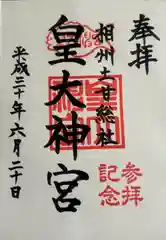 奉拝
相州土甘総社
皇大神宮
参拝
記念
平成三十年六月二十日